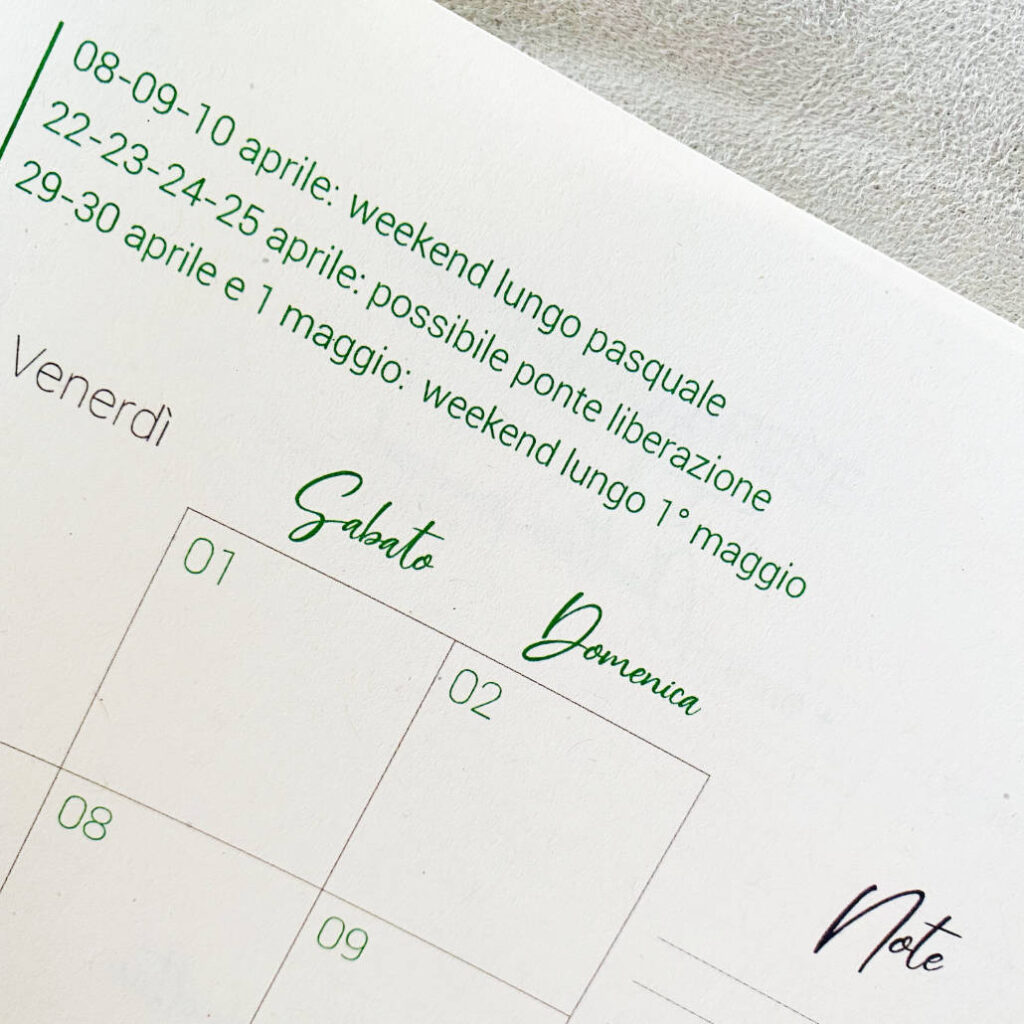 08-09-10 aprile: weekend lungo pasquale
22-23-24-25 aprile: possibile ponte liberazione
29-30 aprile e 1 maggio: weekend lungo 1° maggio
Venerdì
Sabato
Domenica
01
02
08
09
Note